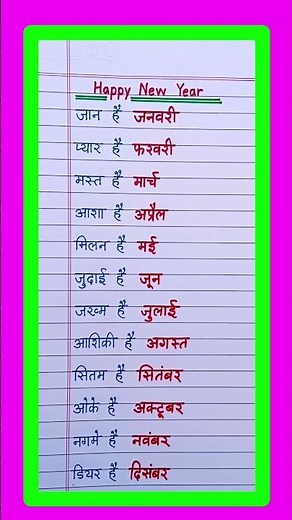 Happy New Year
जान है जनवरी
प्यार है फरवरी
मस्त है मार्च
आशा है अप्रैल
मिलन है मई
जुदाई है जून
जख्म है जुलाई
आशिकी है अगस्त
सितम है सितंबर
ओके है अक्टूबर
नगमे है नवंबर
डियर है दिसंबर